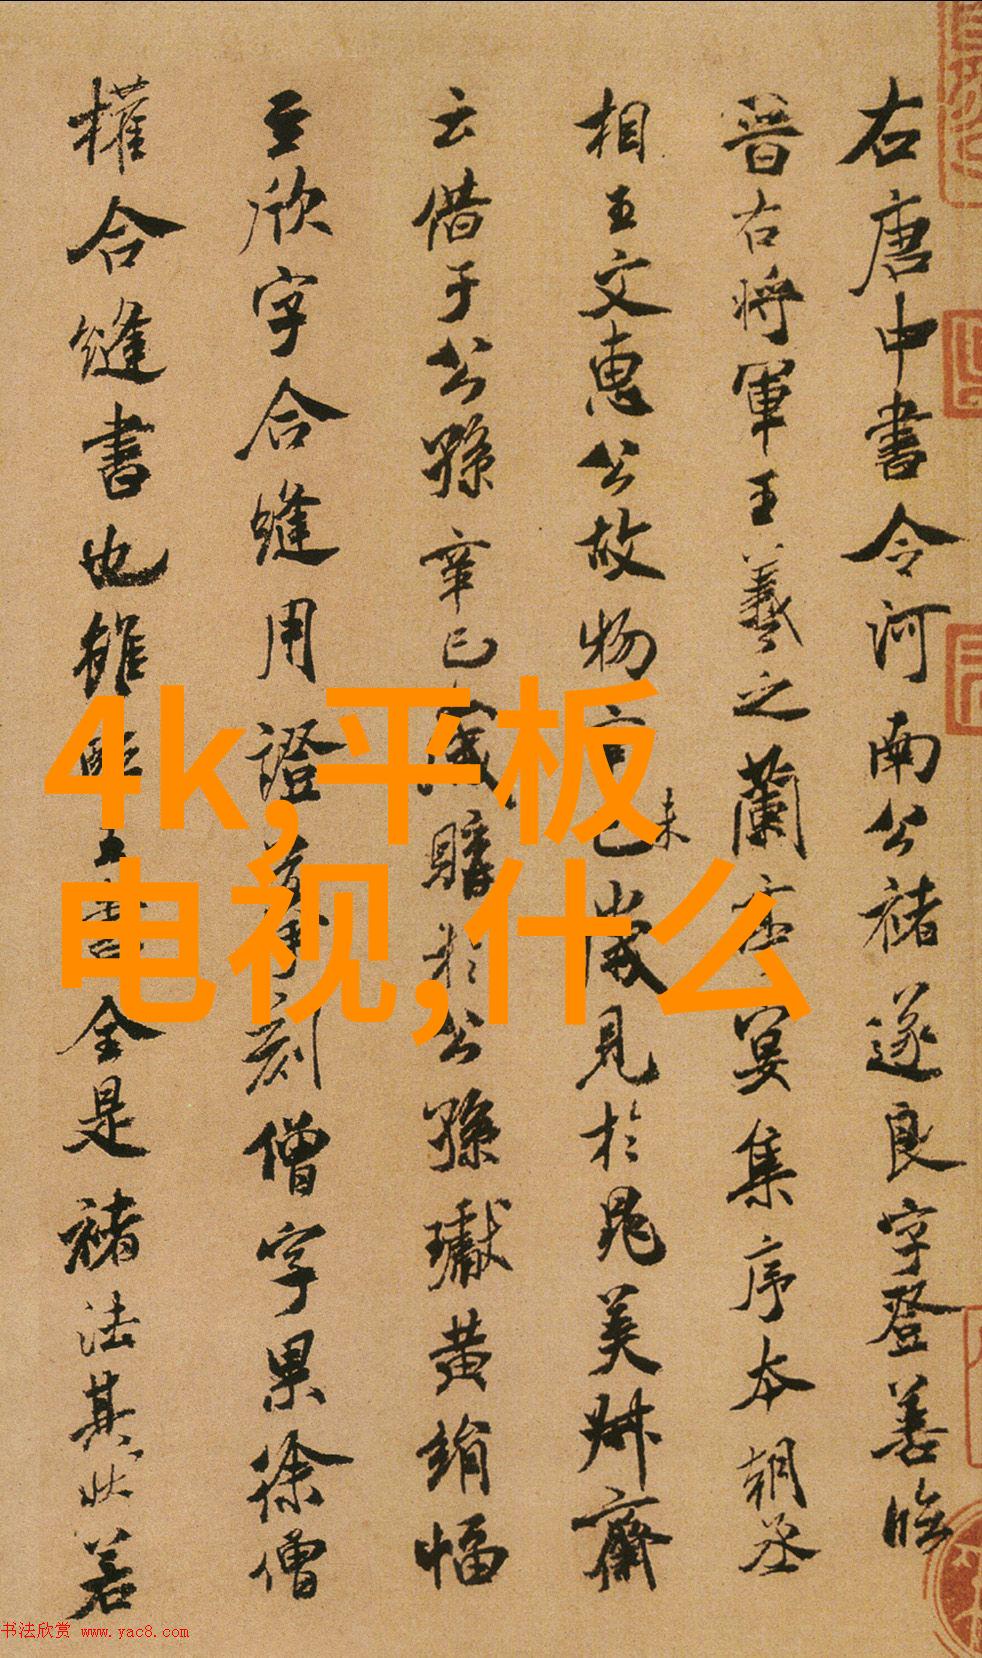 右唐中書令河南公褚遂良字登善臨
晉右將軍王羲之蘭亭宴集序本朝丞
相王文惠公故物辛巳歲見於晁美叔齋
未
云借于公孫辛巳歲購於公孫瓛黃絹幅
至欣字合縫用證摹刻僧字果徐僧
權合縫書也雖臨王書全是褚法其狀若
4k,平板
电视,什么
书法欣赏 www.yac8.com